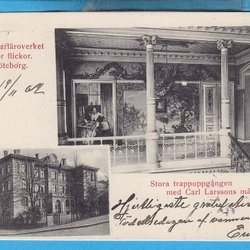 arläroverket
r flickor.
öteborg.
19/11 02
Stora trappuppgången
med Carl Larssons må
Hjertligaste gratulation
födelsedagen af